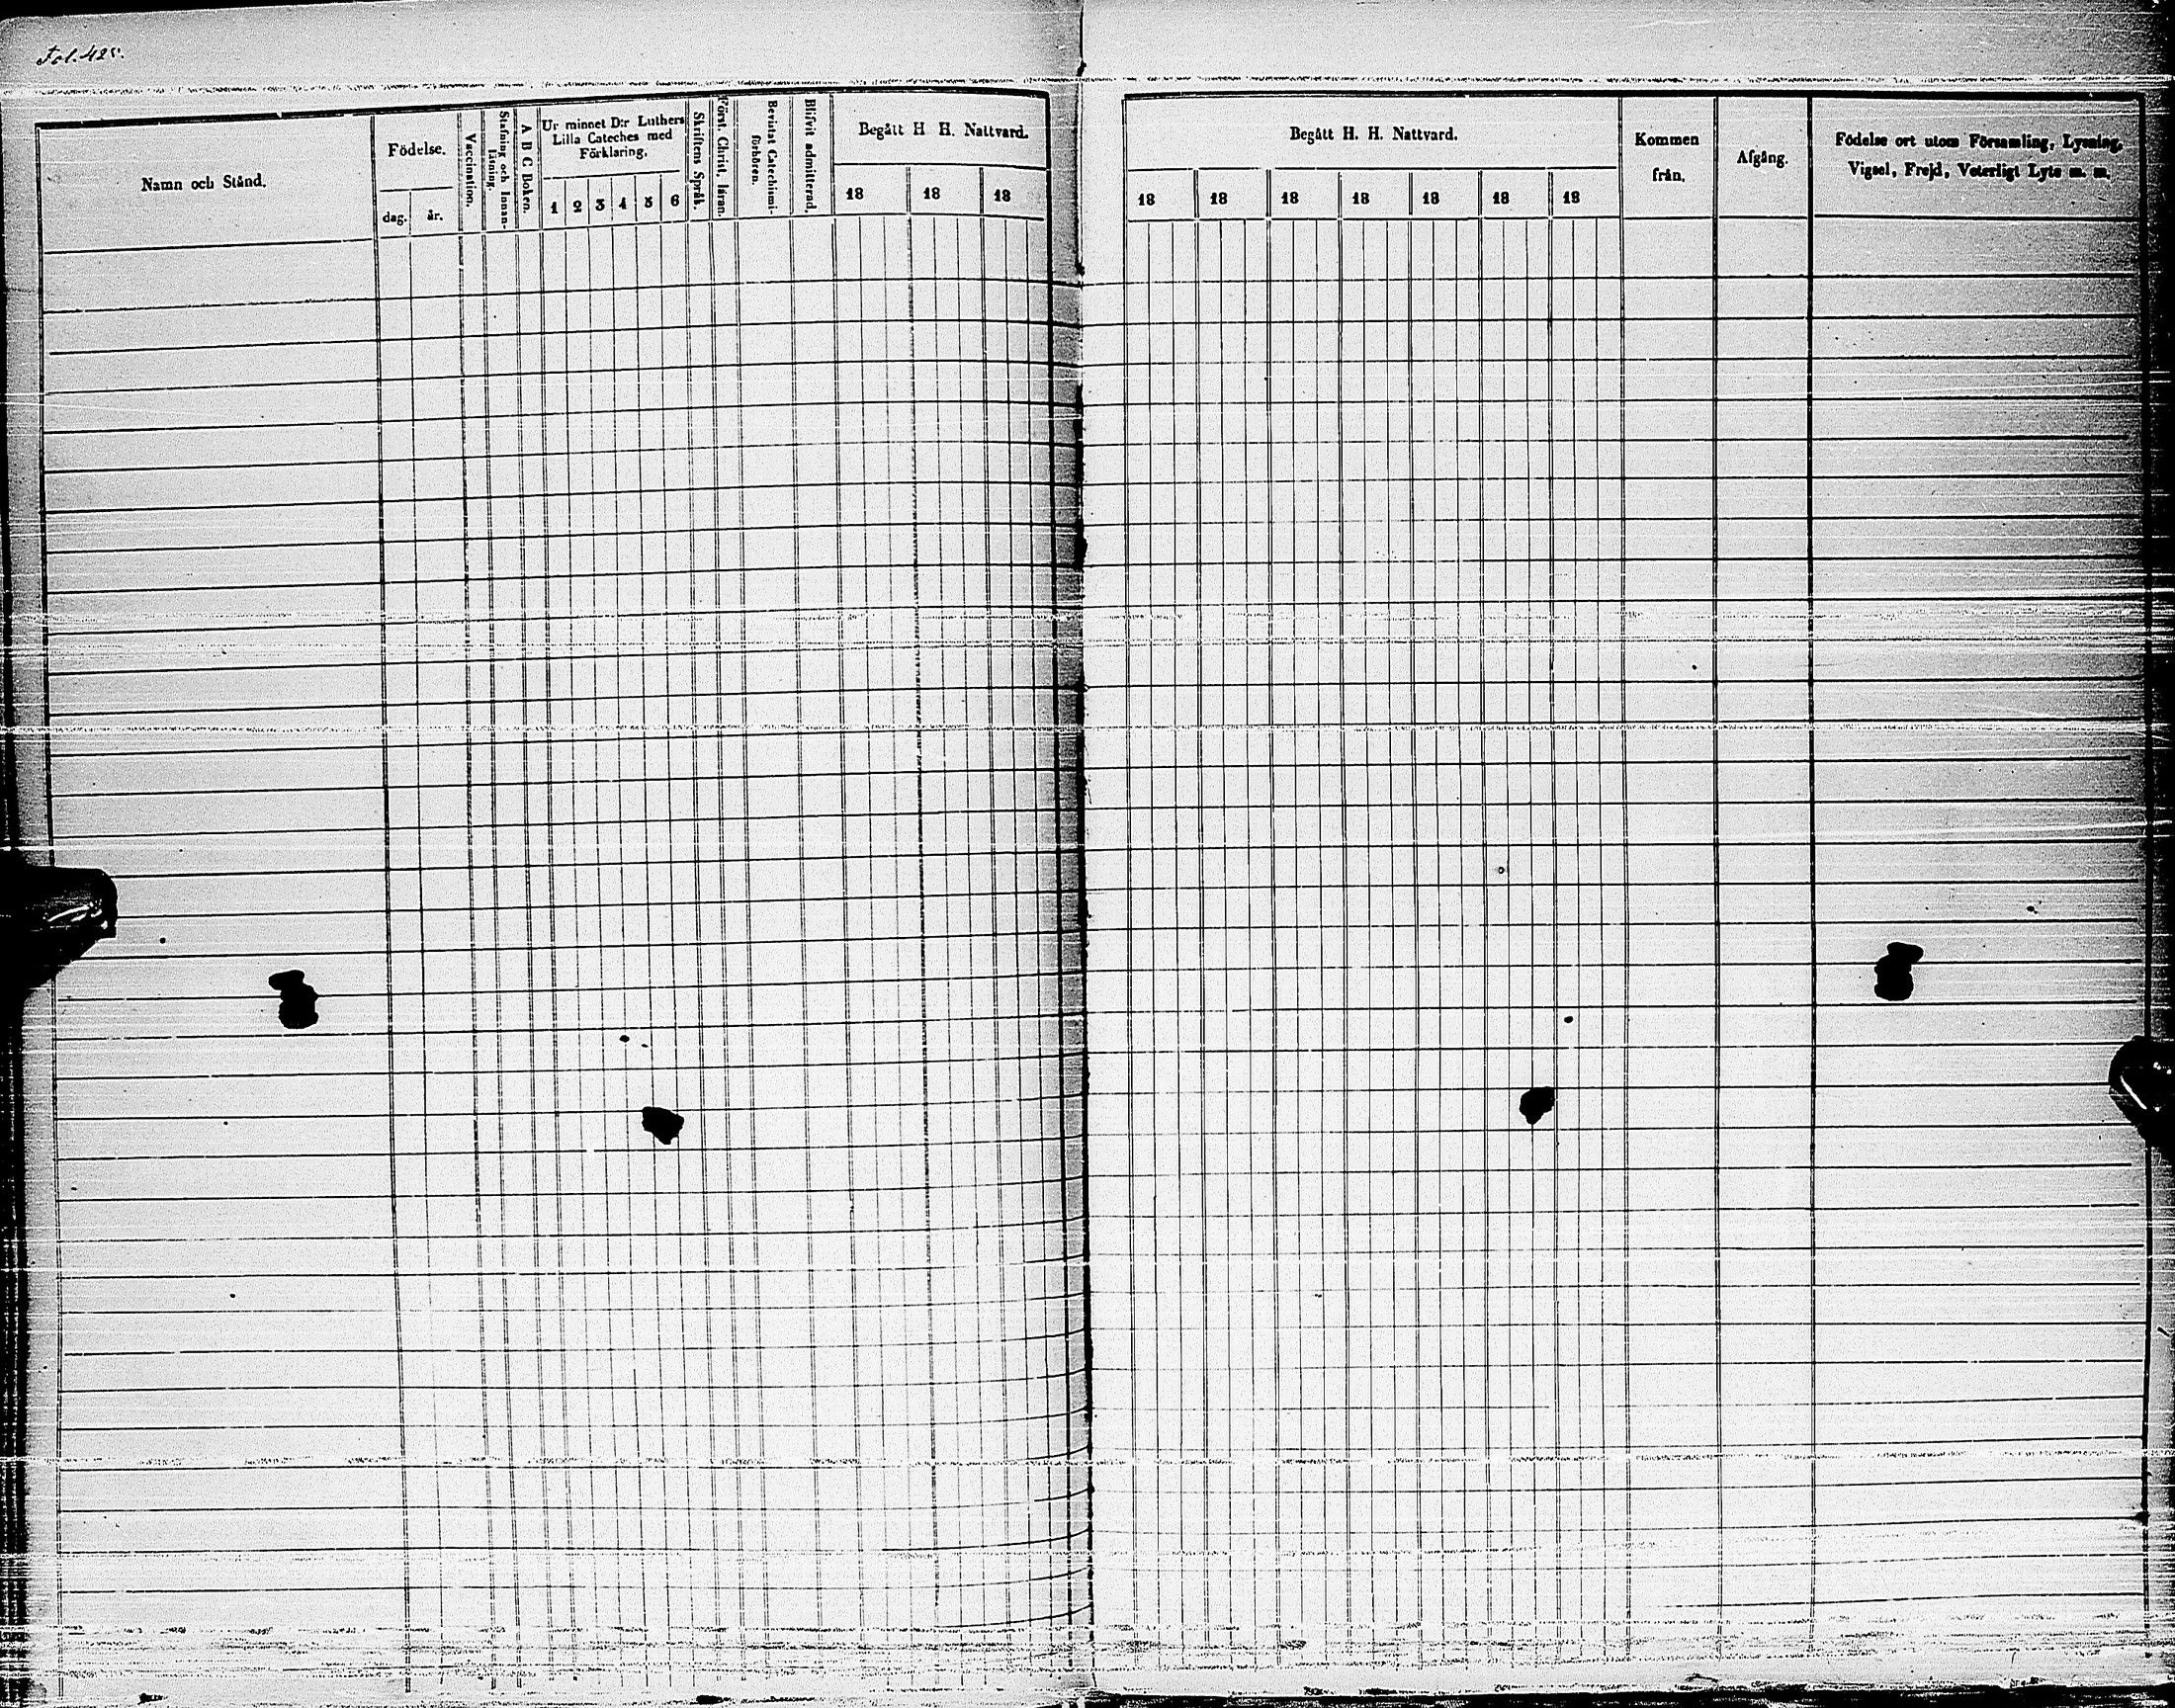 Fol. 428.
Namn och Stånd.
Födelse.
dag.
år.
Vaccination.
Stafning och Innan-
läsning.
A B C Boken.
Ur minnet D:r Luthers
Lilla Cateches med
Förklaring.
1 2 3 4 5 6
Skriftens Språk.
Först. Christ. läran.
Bevistat Catechismi-
förhören.
Blifvit admitterad.
Begått H H. Nattvard.
18 18 18
Begått H. H. Nattvard.
18 18 18 18 18 18 18
Kommen
från.
Afgång.
Födelse ort utom Församling, Lysning,
Vigsel, Frejd, Veterligt Lyte m. m.